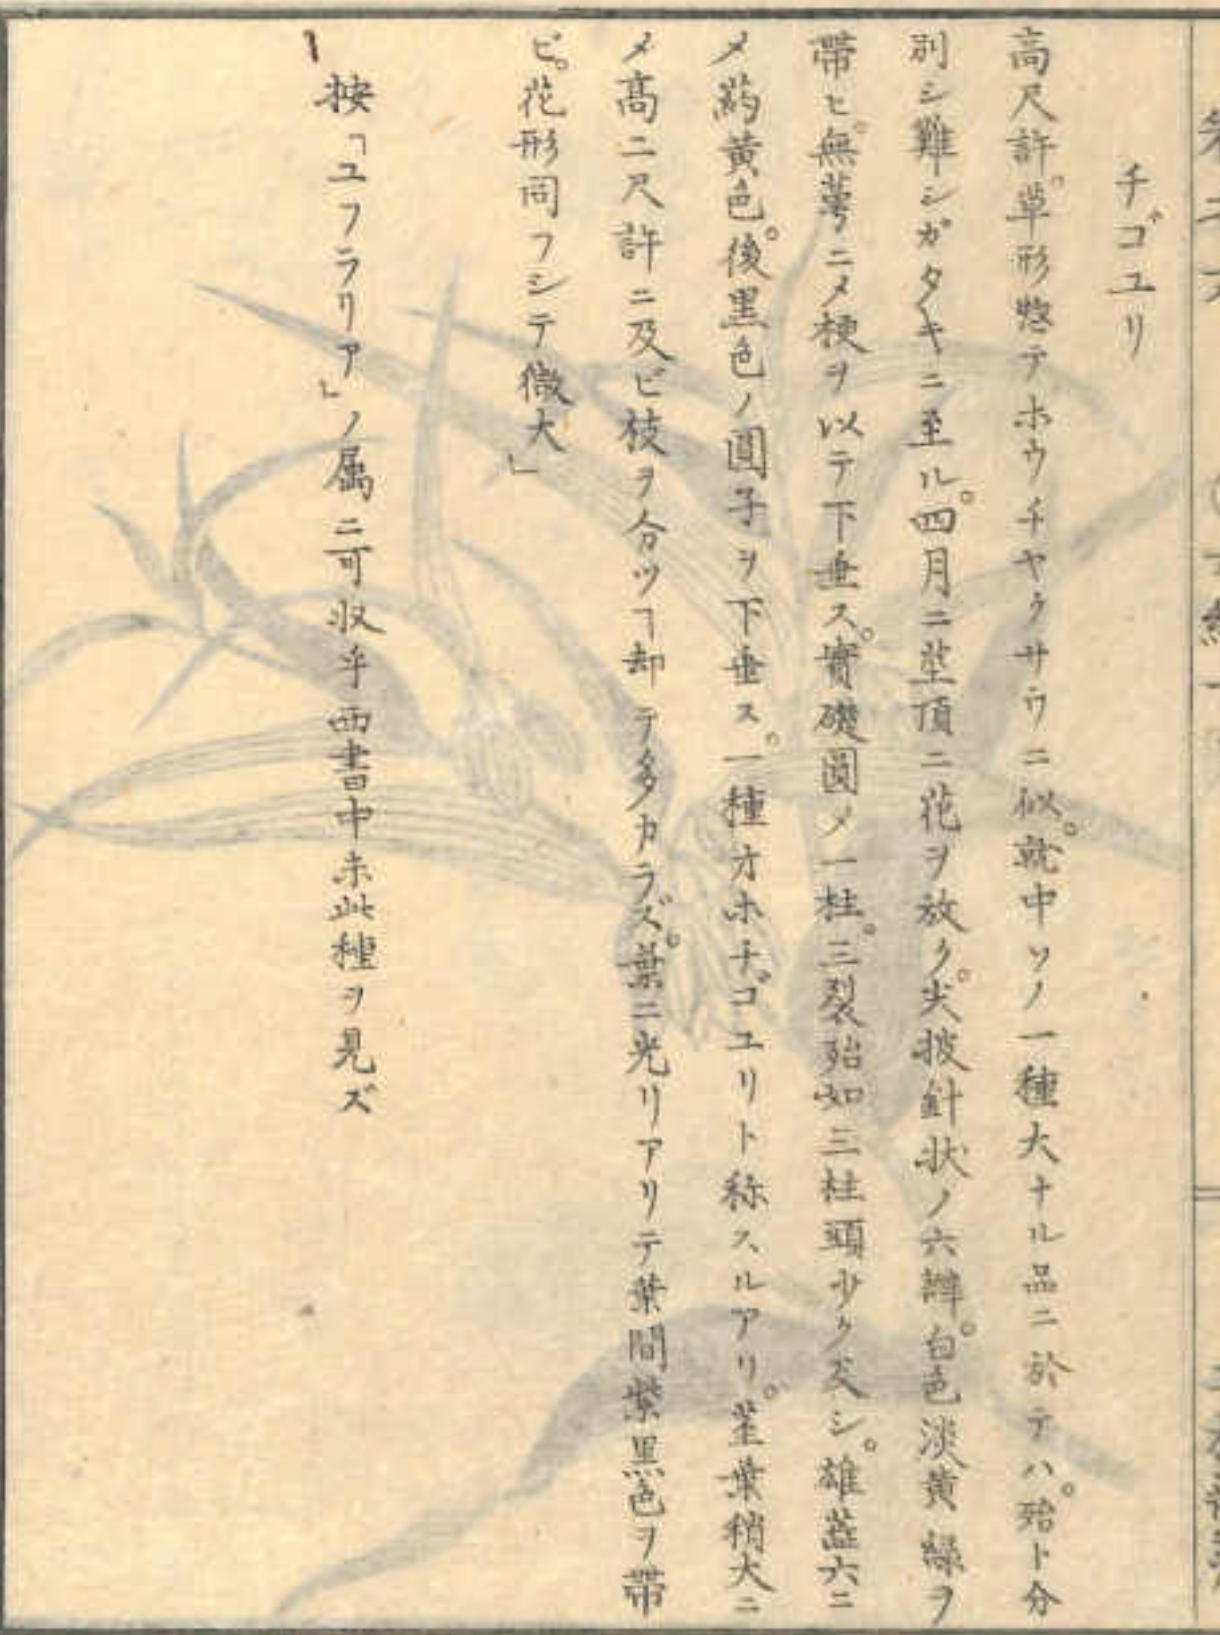 チゴユリ
高尺許。草形惣テホウチヤクサウニ似。就中ソノ一種大ナル品ニ於テハ。殆ト分
別シ難シガタキニ至ル。四月ニ莖頂ニ花ヲ放ク。尖披針状ノ六瓣。白色淡黄緑ヲ
帶ヒ。無萼ニメ梗ヲ以テ下垂ス。實礎圓メ一柱。三裂殆如三柱頭少ク反シ。雄蕊六ニ
メ葯黄色。後黒色ノ圓子ヲ下垂ス。一種オホチゴユリト称スルアリ。莖葉稍大ニ
メ高二尺許ニ及ビ枝ヲ分ツヿ却テ多カラズ。葉ニ光リアリテ葉間紫黒色ヲ帶
ビ。花形同フシテ微大」
按「ユフラリア」ノ属ニ可収乎西書中未此種ヲ見ズ